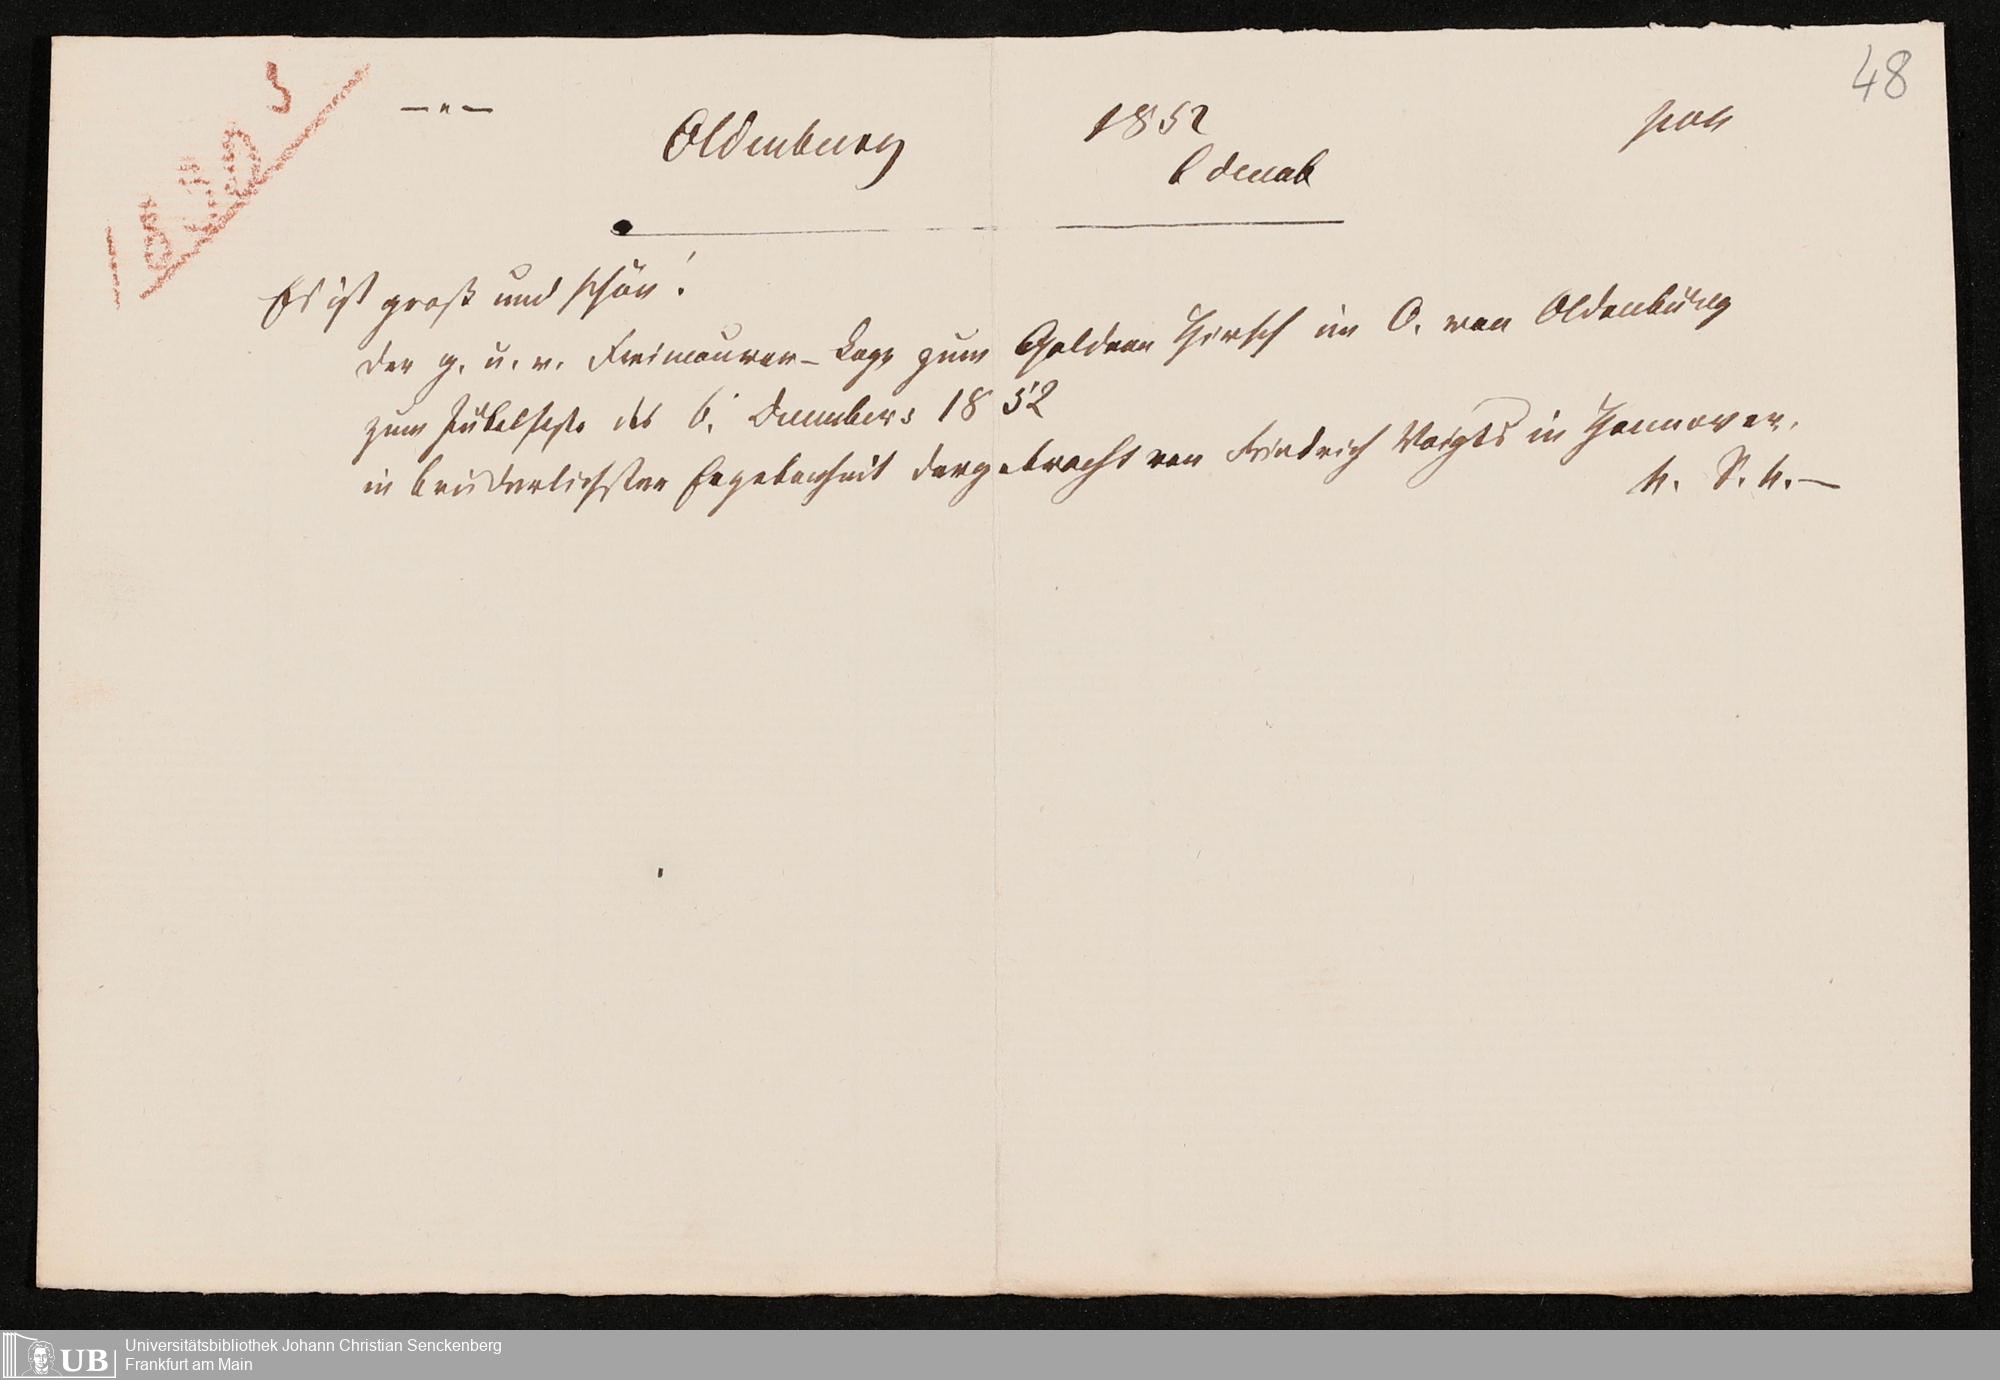 48
— „ — Oldenburg 1852
6 Decab
Es ist groß und schön!
der g. u. v. Freimaurer-Loge zum Goldnen Hirsch im O. von Oldenburg
zum Jubelfeste des 6. Decembers 1852
in brüderlichster Ergebenheit dargebracht von Friedrich Voigts in Hannover.
4. S. 4. —
Universitätsbibliothek Johann Christian Senckenberg
Frankfurt am Main
UB